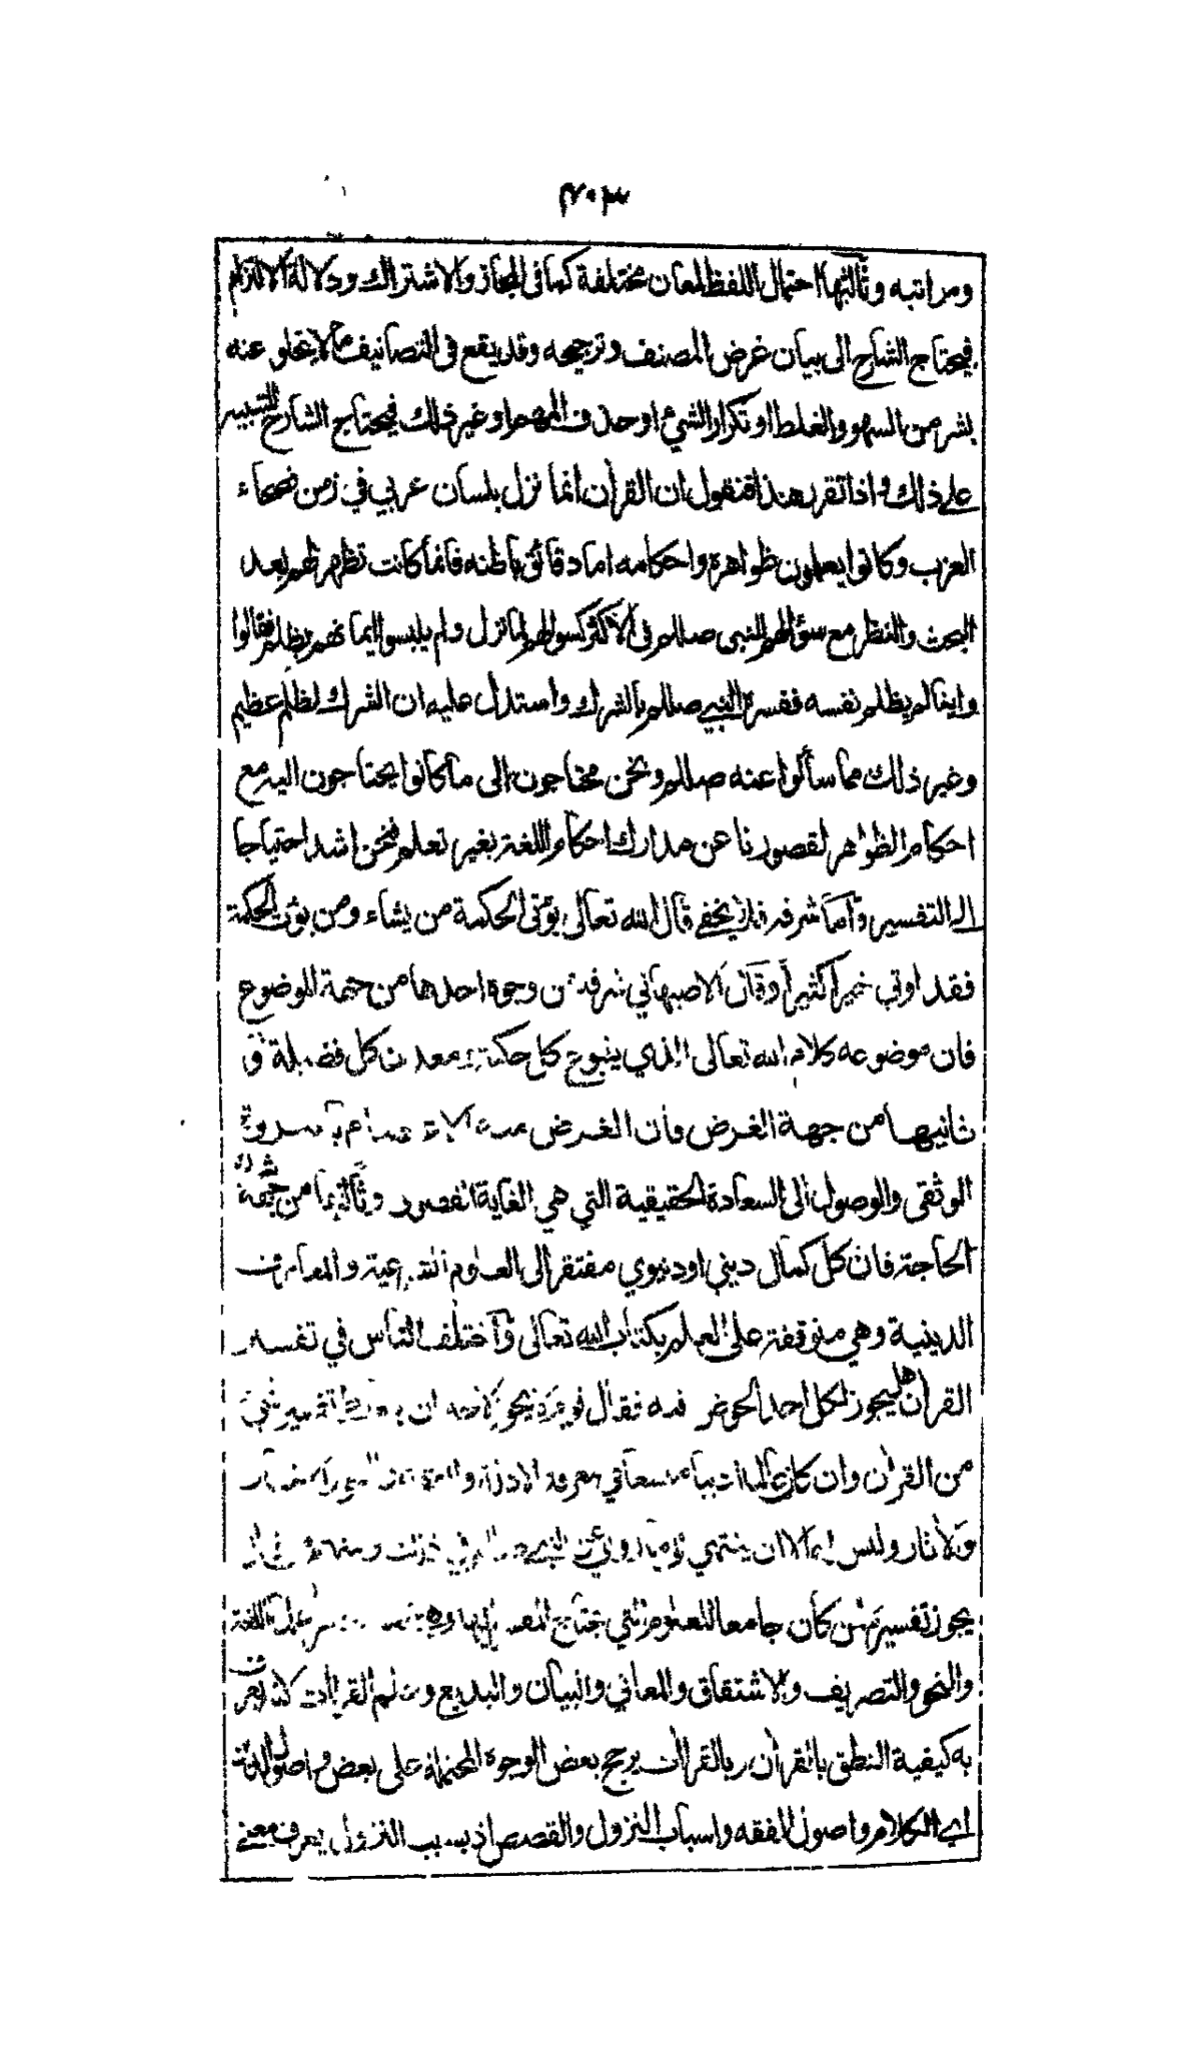 ٧٠٣
ومراتبه وثالثها احتمال اللفظ لمعان مختلفة كما في المجاز والاشتراك ودلالة الالتزام
فيحتاج الشارح الى بيان غرض المصنف وترجيحه وقد يقع في التصانيف ما لا يخلو عنه
بشر من السهو والغلط او تكرار الشيء او حذف المهم او غير ذلك فيحتاج الشارح التنبيه
على ذلك واذا تقرر هذا فنقول ان القرأن انما نزل بلسان عربي في زمن فصحاء
العرب وكانوا يعلمون ظواهره واحكامه اما دقائق باطنه فانما كانت تظهر لهم بعد
البحث والنظر مع سؤالهم النبي صلعم في الاكثر كسؤالهم لما نزل ولم يلبسوا ايمانهم بظلم فقالوا
واينا لم يظلم نفسه ففسره النبي صلعم بالشرك واستدل عليه ان الشرك لظلم عظيم
وغير ذلك مما سألوا عنه صلعم ونحن محتاجون الى ما كانوا يحتاجون اليه مع
احكام الظواهر لقصورنا عن مدارك احكام اللغة بغير تعلم فنحن اشد احتياجا
الى التفسير وأما شرفه فلا يخفى قال الله تعالى يؤتي الحكمة من يشاء ومن يؤت الحكمة
فقد اوتي خيرا كثيرا وقال الاصبهاني شرفه من وجوه احدها من جهة الموضوع
فان موضوعه كلام الله تعالى الذي ينبوع كل حكمة ومعدن كل فضيلة و
ثانيها من جهة الغرض فان الغرض منه الاعتصام بالعروة
الوثقى والوصول الى السعادة الحقيقية التي هي الغاية القصوى وثالثها من جهة شدة
الحاجة فان كل كمال ديني او دنيوي مفتقر الى العلوم الشرعية والمعارف
الدينية وهي متوقفة على العلم بكتاب الله تعالى واختلف الناس في تفسير
القرأن هل يجوز لكل احد الخوض فيه فقال قوم لا يجوز لاحد ان يتعاطى تفسير شيء
من القرأن وان كان عالما اديبا متسعا في معرفة الادلة والفقه والنحو والاخبار
والاثار وليس له الا ان ينتهي الى ما روي عن النبي صلعم في ذلك ومنهم من قال
يجوز تفسيره لمن كان جامعا للعلوم التي يحتاج المفسر اليها وهي خمسة عشر علما اللغة
والنحو والتصريف والاشتقاق والمعاني والبيان والبديع وعلم القراءات لانه يعرف
به كيفية النطق بالقرأن وبالقراات يرجح بعض الوجوه المحتملة على بعض واصول الدين
اي الكلام واصول الفقه واسباب النزول والقصص اذ بسبب النزول يعرف معنى